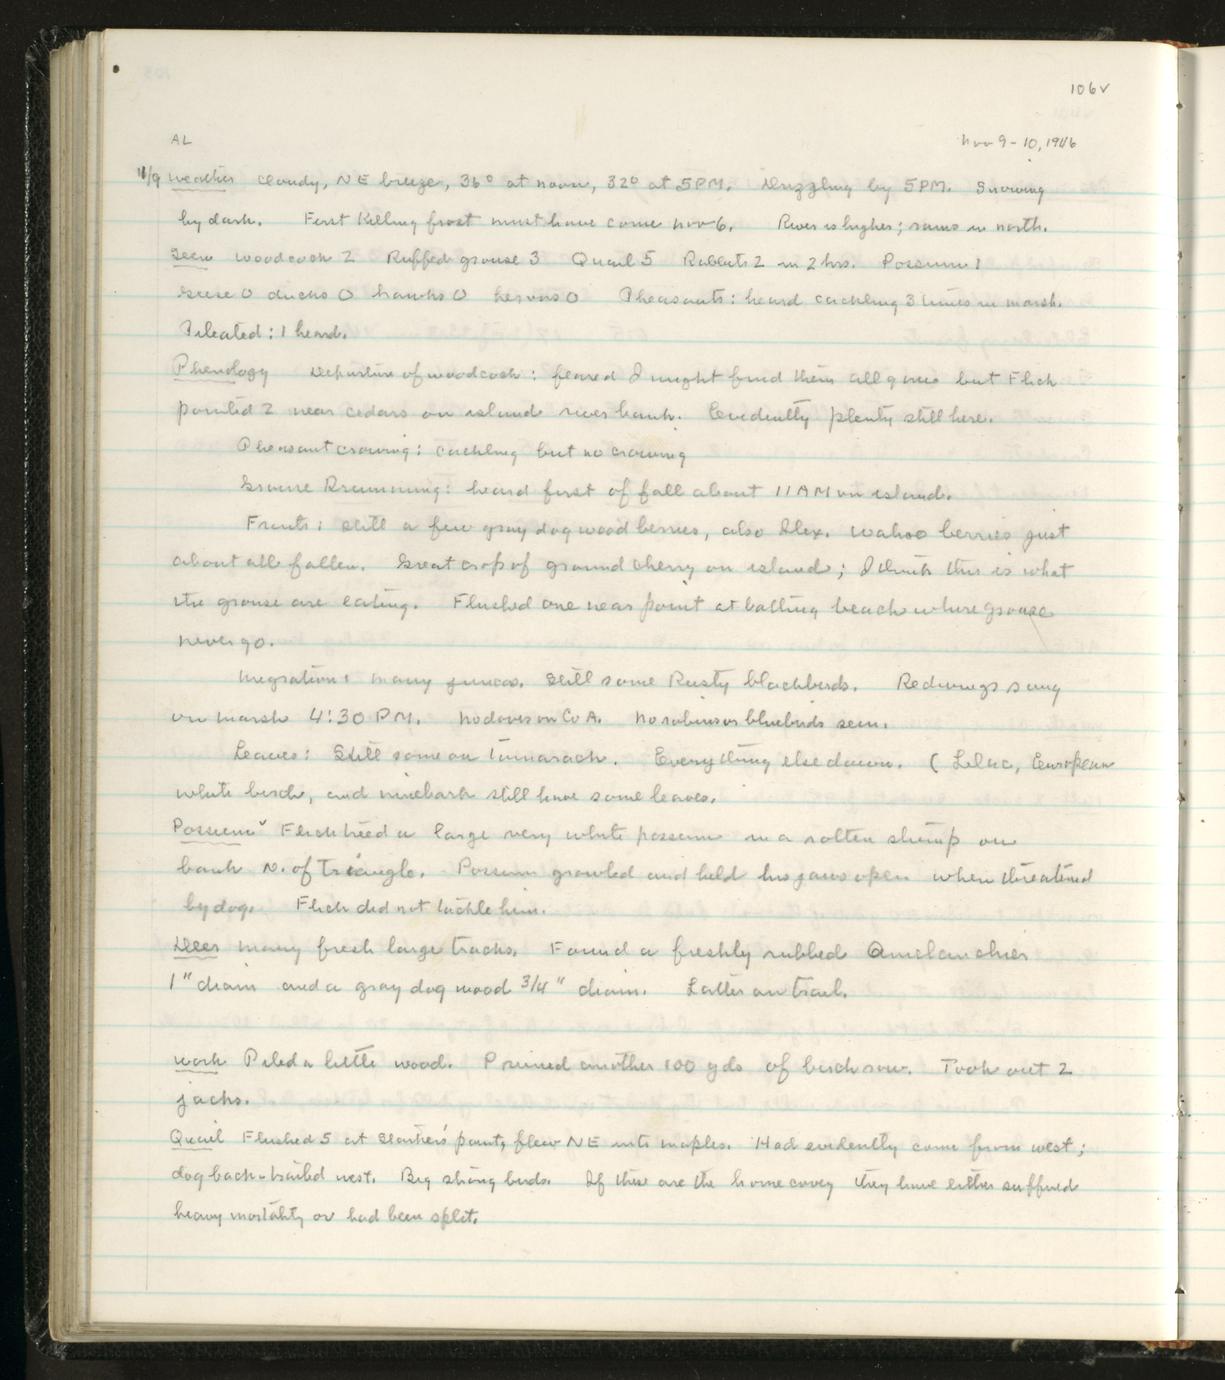 106v
AL Nov 9-10, 1946
11/9 Weather Cloudy, NE breeze, 36° at noon, 32° at 5PM. Drizzling by 5PM. Snowing
by dark. First killing frost must have come Nov 6. River is higher; rains in north.
Seen Woodcock 2 Ruffed grouse 3 Quail 5 Rabbits 2 in 2 hrs. Possum 1
Geese 0 ducks 0 hawks 0 herons 0 Pheasants: heard cackling 3 times in marsh.
Pileated: 1 heard.
Phenology Departure of woodcock: feared I might find them all gone but Flick
pointed 2 near cedars on island river bank. Evidently plenty still here.
Pheasant crowing: cackling but no crowing
Grouse Drumming: heard first of fall about 11 AM on island.
Fruits: Still a few gray dogwood berries, also Ilex. Wahoo berries just
about all fallen. Great crop of ground cherry on island; I think this is what
the grouse are eating. Flushed one near point at bathing beach where grouse
never go.
Migration: many juncos. Still some Rusty blackbirds. Redwings sang
on marsh 4:30 PM. No doves on Co A. No robins or bluebirds seen.
Leaves: Still some on Tamarack. Everything else down. (Lilac, European
white birch, and ninebark still have some leaves.
Possum Flick treed a large very white possum in a rotten stump on
bank N. of Triangle. Possum growled and held his jaws open when threatened
by dog. Flick did not tackle him.
Deer many fresh large tracks. Found a freshly rubbed Amelanchier
1" diam and a gray dogwood 3/4" diam. Latter on trail.
Work Piled a little wood. Pruned another 100 yds of birch row. Took out 2
jacks.
Quail Flushed 5 at point, flew NE into maples. Had evidently come from west;
dog back-trailed west. Big strong birds. If these are the home covey they have either suffered
heavy mortality or had been split.